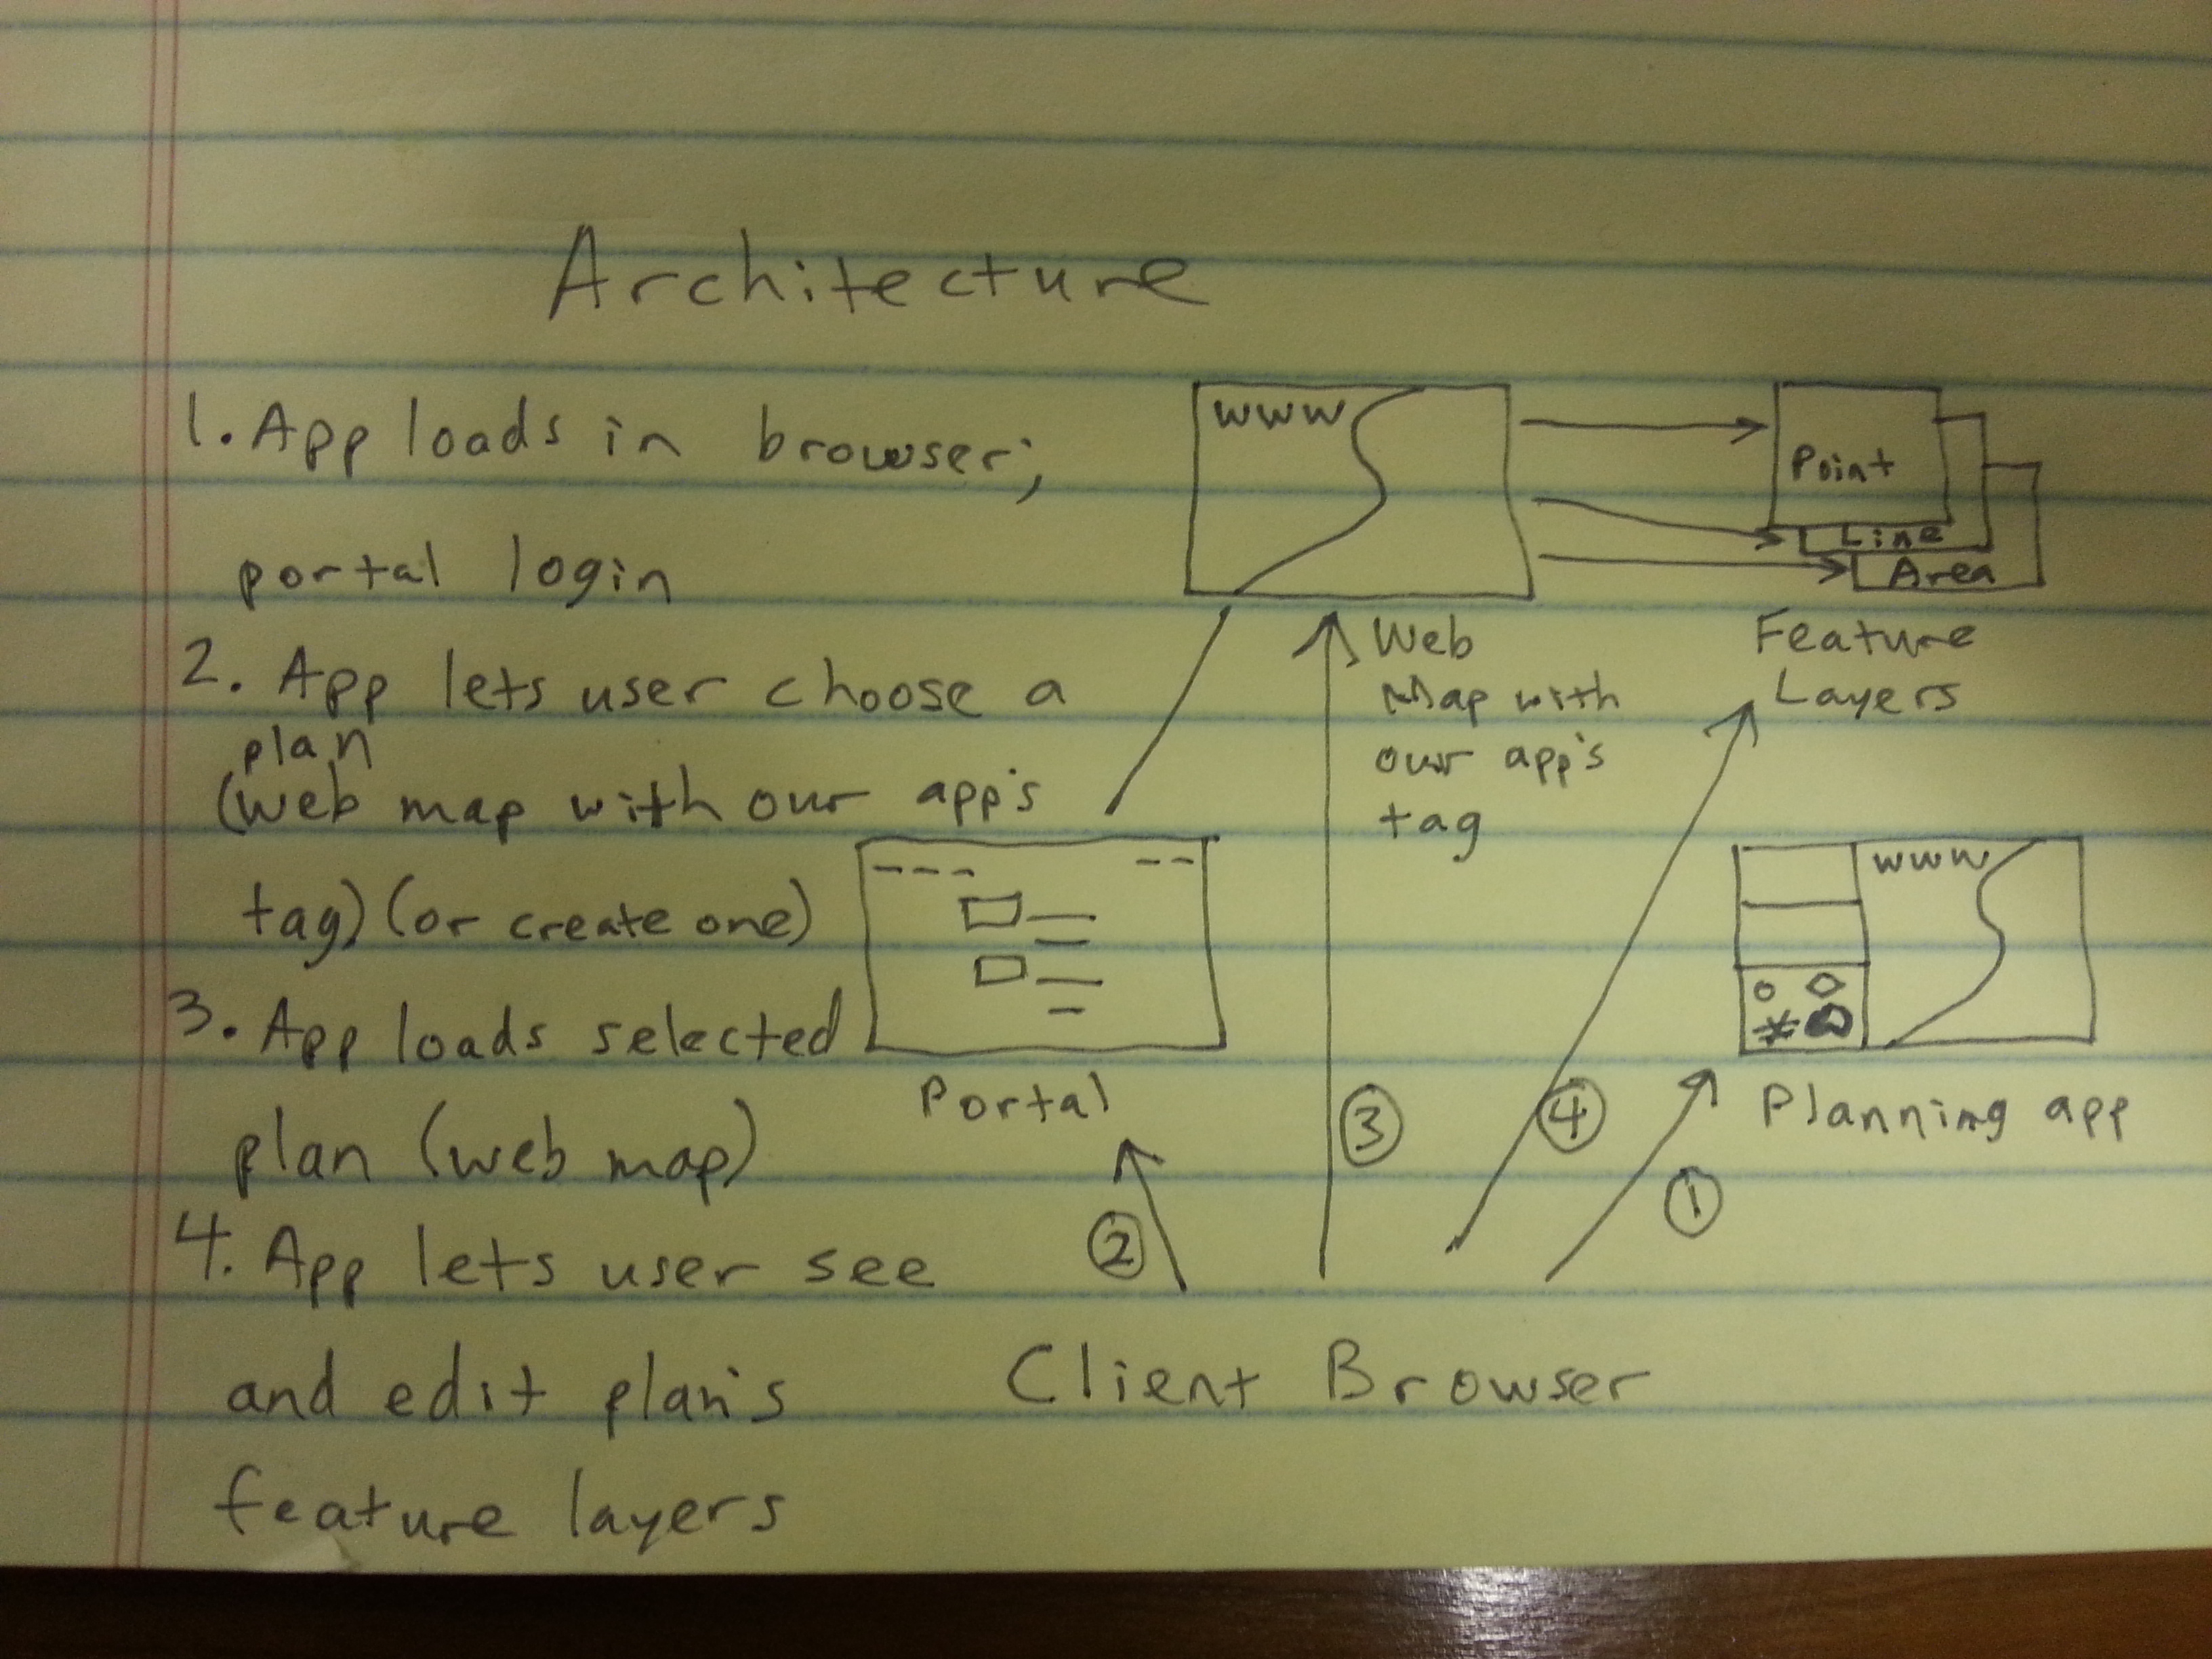 Architecture
1. App loads in browser;
portal login
2. App lets user choose a
plan
(web map with our app's
tag) (or create one)
3. App loads selected
plan (web map)
4. App lets user see
and edit plan's
feature layers
www
Point
Line
Area
Web
Map with
our app's
tag
Feature
Layers
www
Portal
Planning app
3
4
1
2
Client Browser